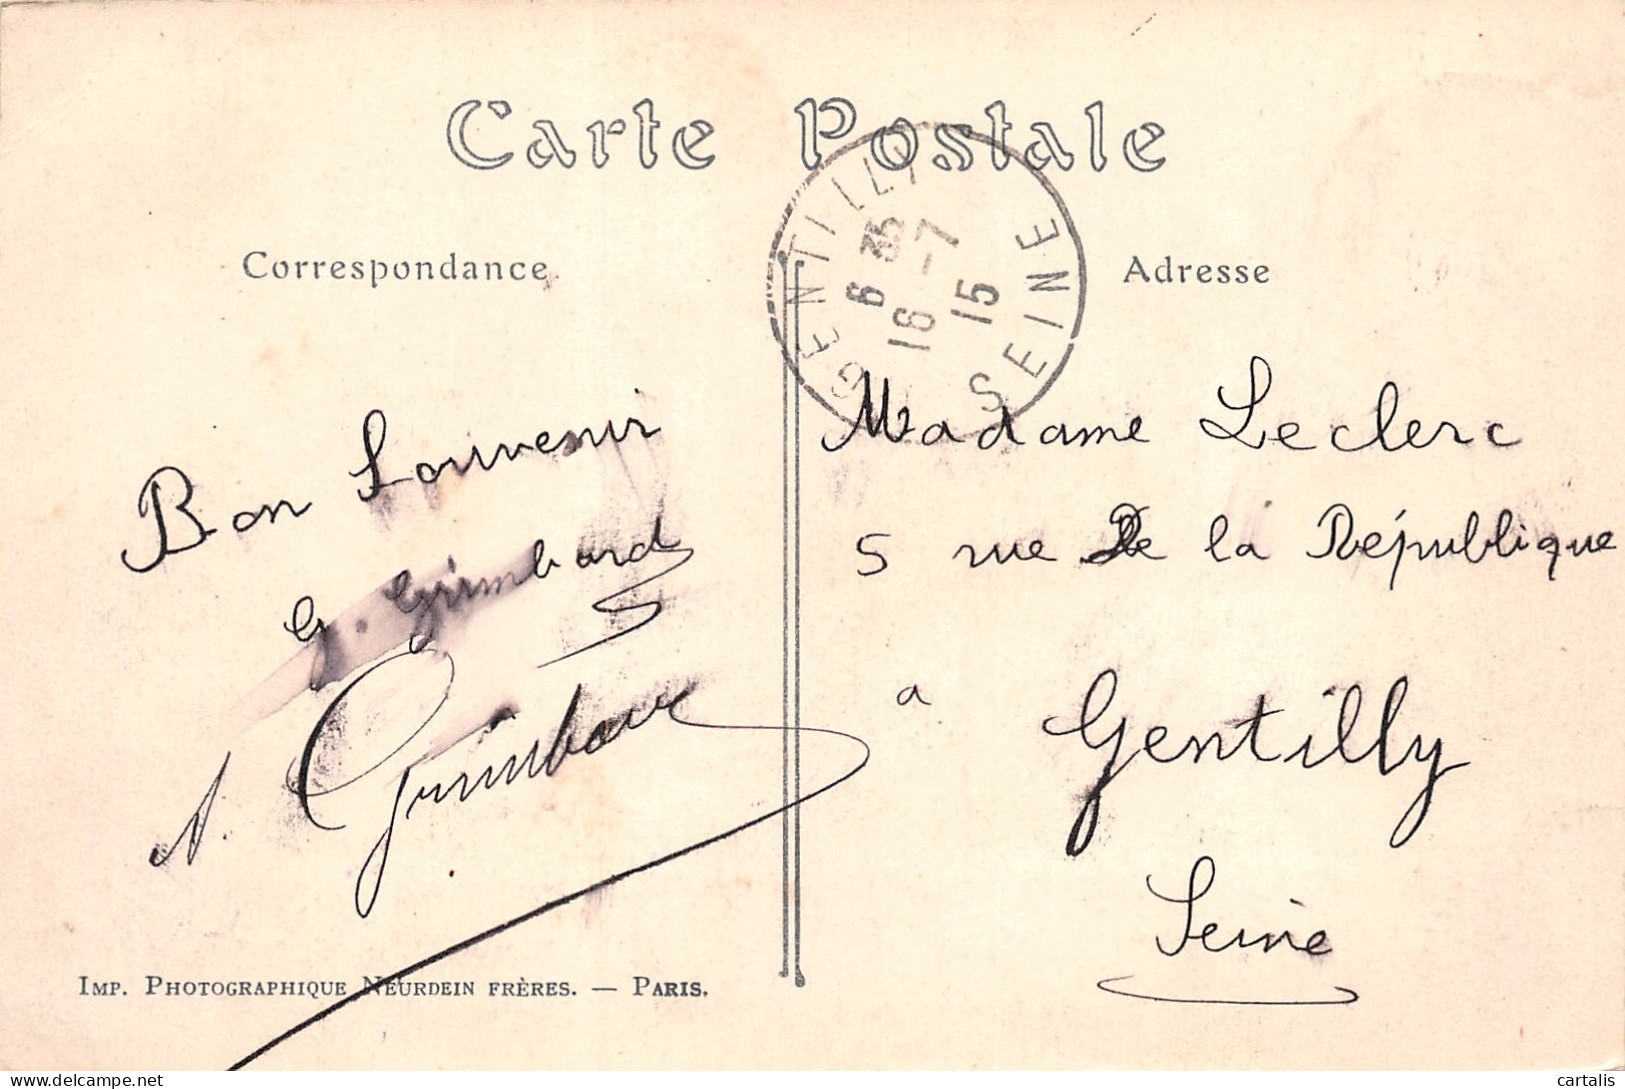 Carte Postale
Correspondance
Adresse
GENTILLY
6 35
16 -7
15
SEINE
Bon Souvenir
G. Grimbard
Madame Leclerc
5 rue De la République
a Gentilly
Seine
IMP. PHOTOGRAPHIQUE NEURDEIN FRÈRES. — PARIS.
delcampe.net
cartalis